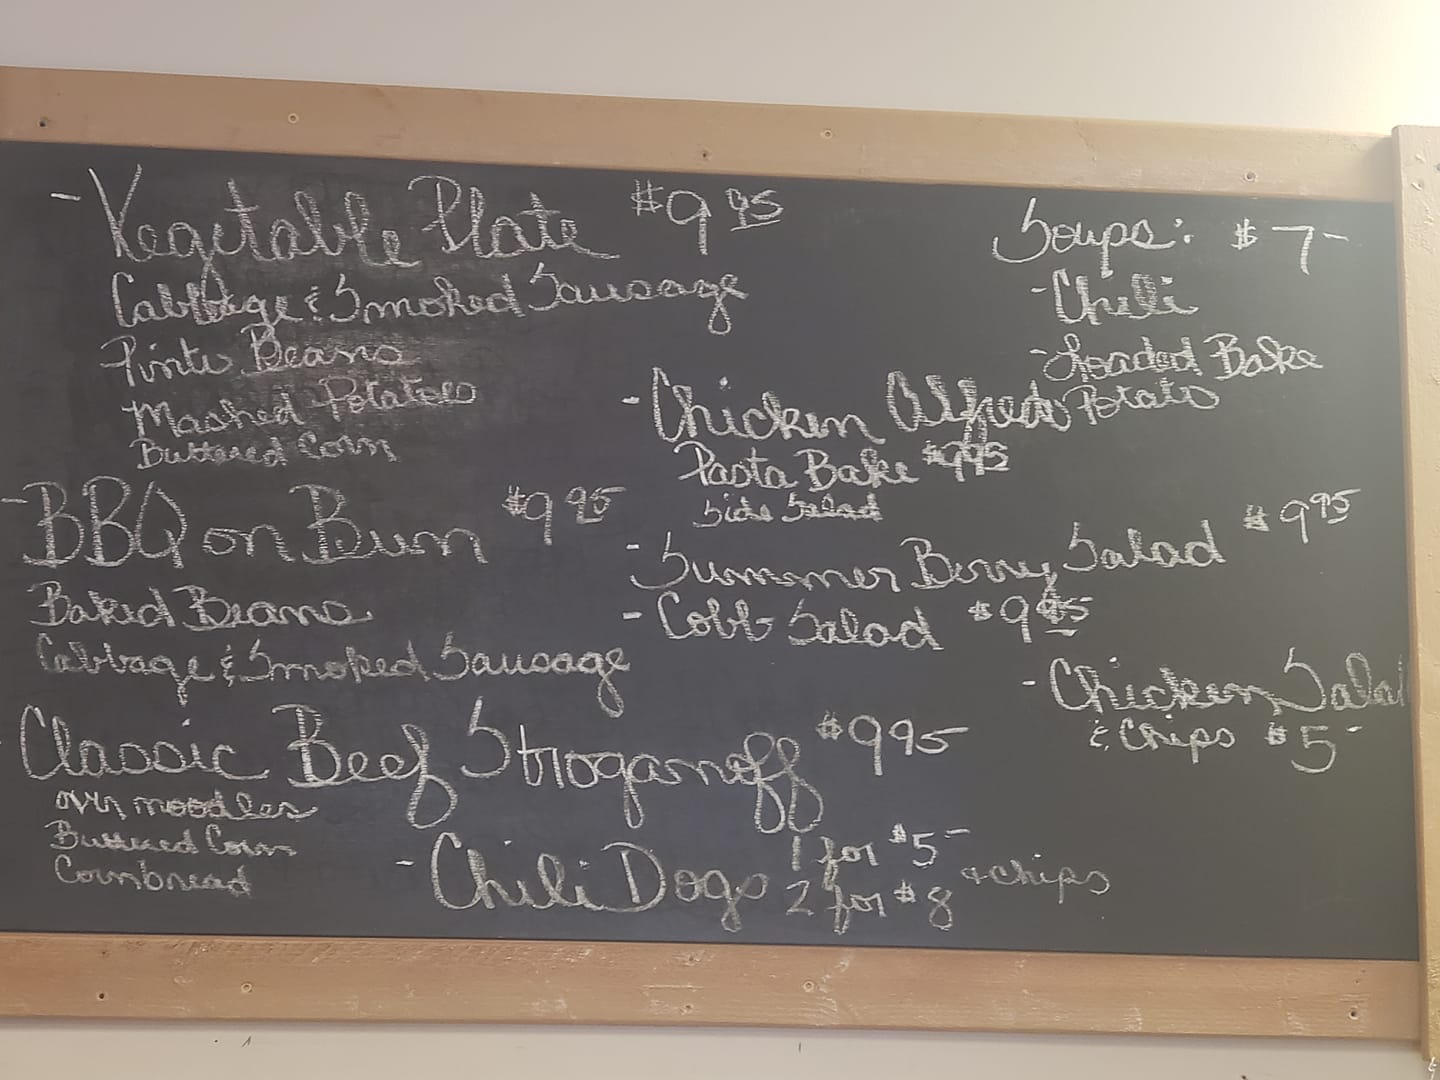 - Vegetable Plate $9.95
Cabbage & Smoked Sausage
Pinto Beans
Mashed Potatoes
Buttered Corn
- BBQ on Bun $9.95
Baked Beans
Cabbage & Smoked Sausage
- Classic Beef Stroganoff $9.95
over noodles
Buttered Corn
Cornbread
- Chili Dogs 1 for $5-
2 for $8 + chips
Soups: $7-
- Chili
- Loaded Bake
Potato
- Chicken Alfredo
Pasta Bake $9.95
Side Salad
- Summer Berry Salad $9.95
- Cobb Salad $9.95
- Chicken Salad
& Chips $5-